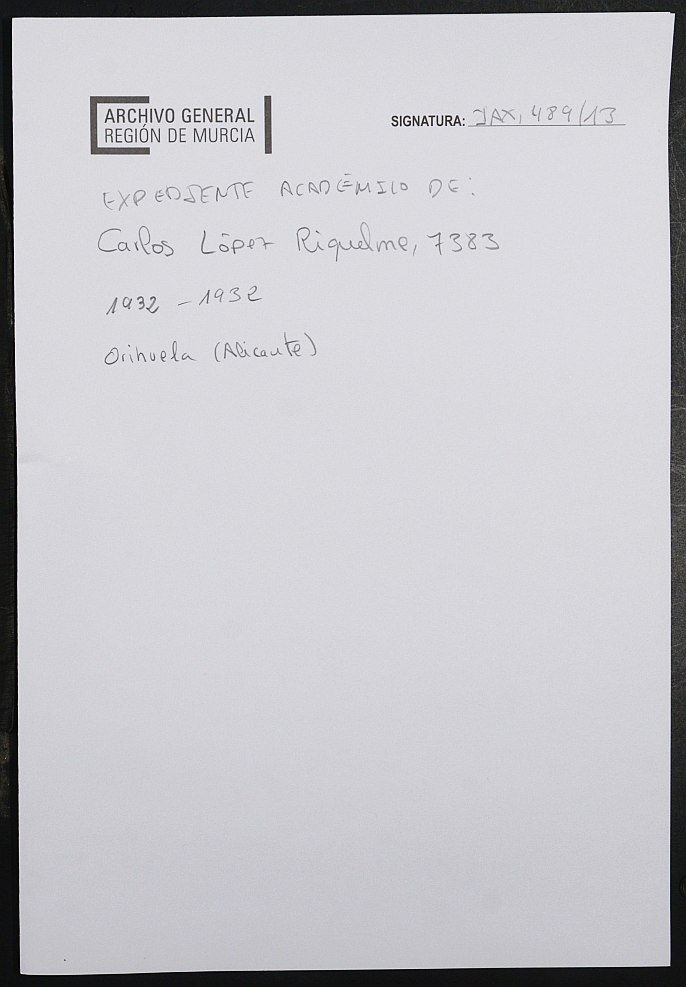 ARCHIVO GENERAL
REGIÓN DE MURCIA
SIGNATURA: JAX, 489/13
EXPEDIENTE ACADÉMICO DE:
Carlos López Riquelme, 7383
1932 - 1932
Orihuela (Alicante)